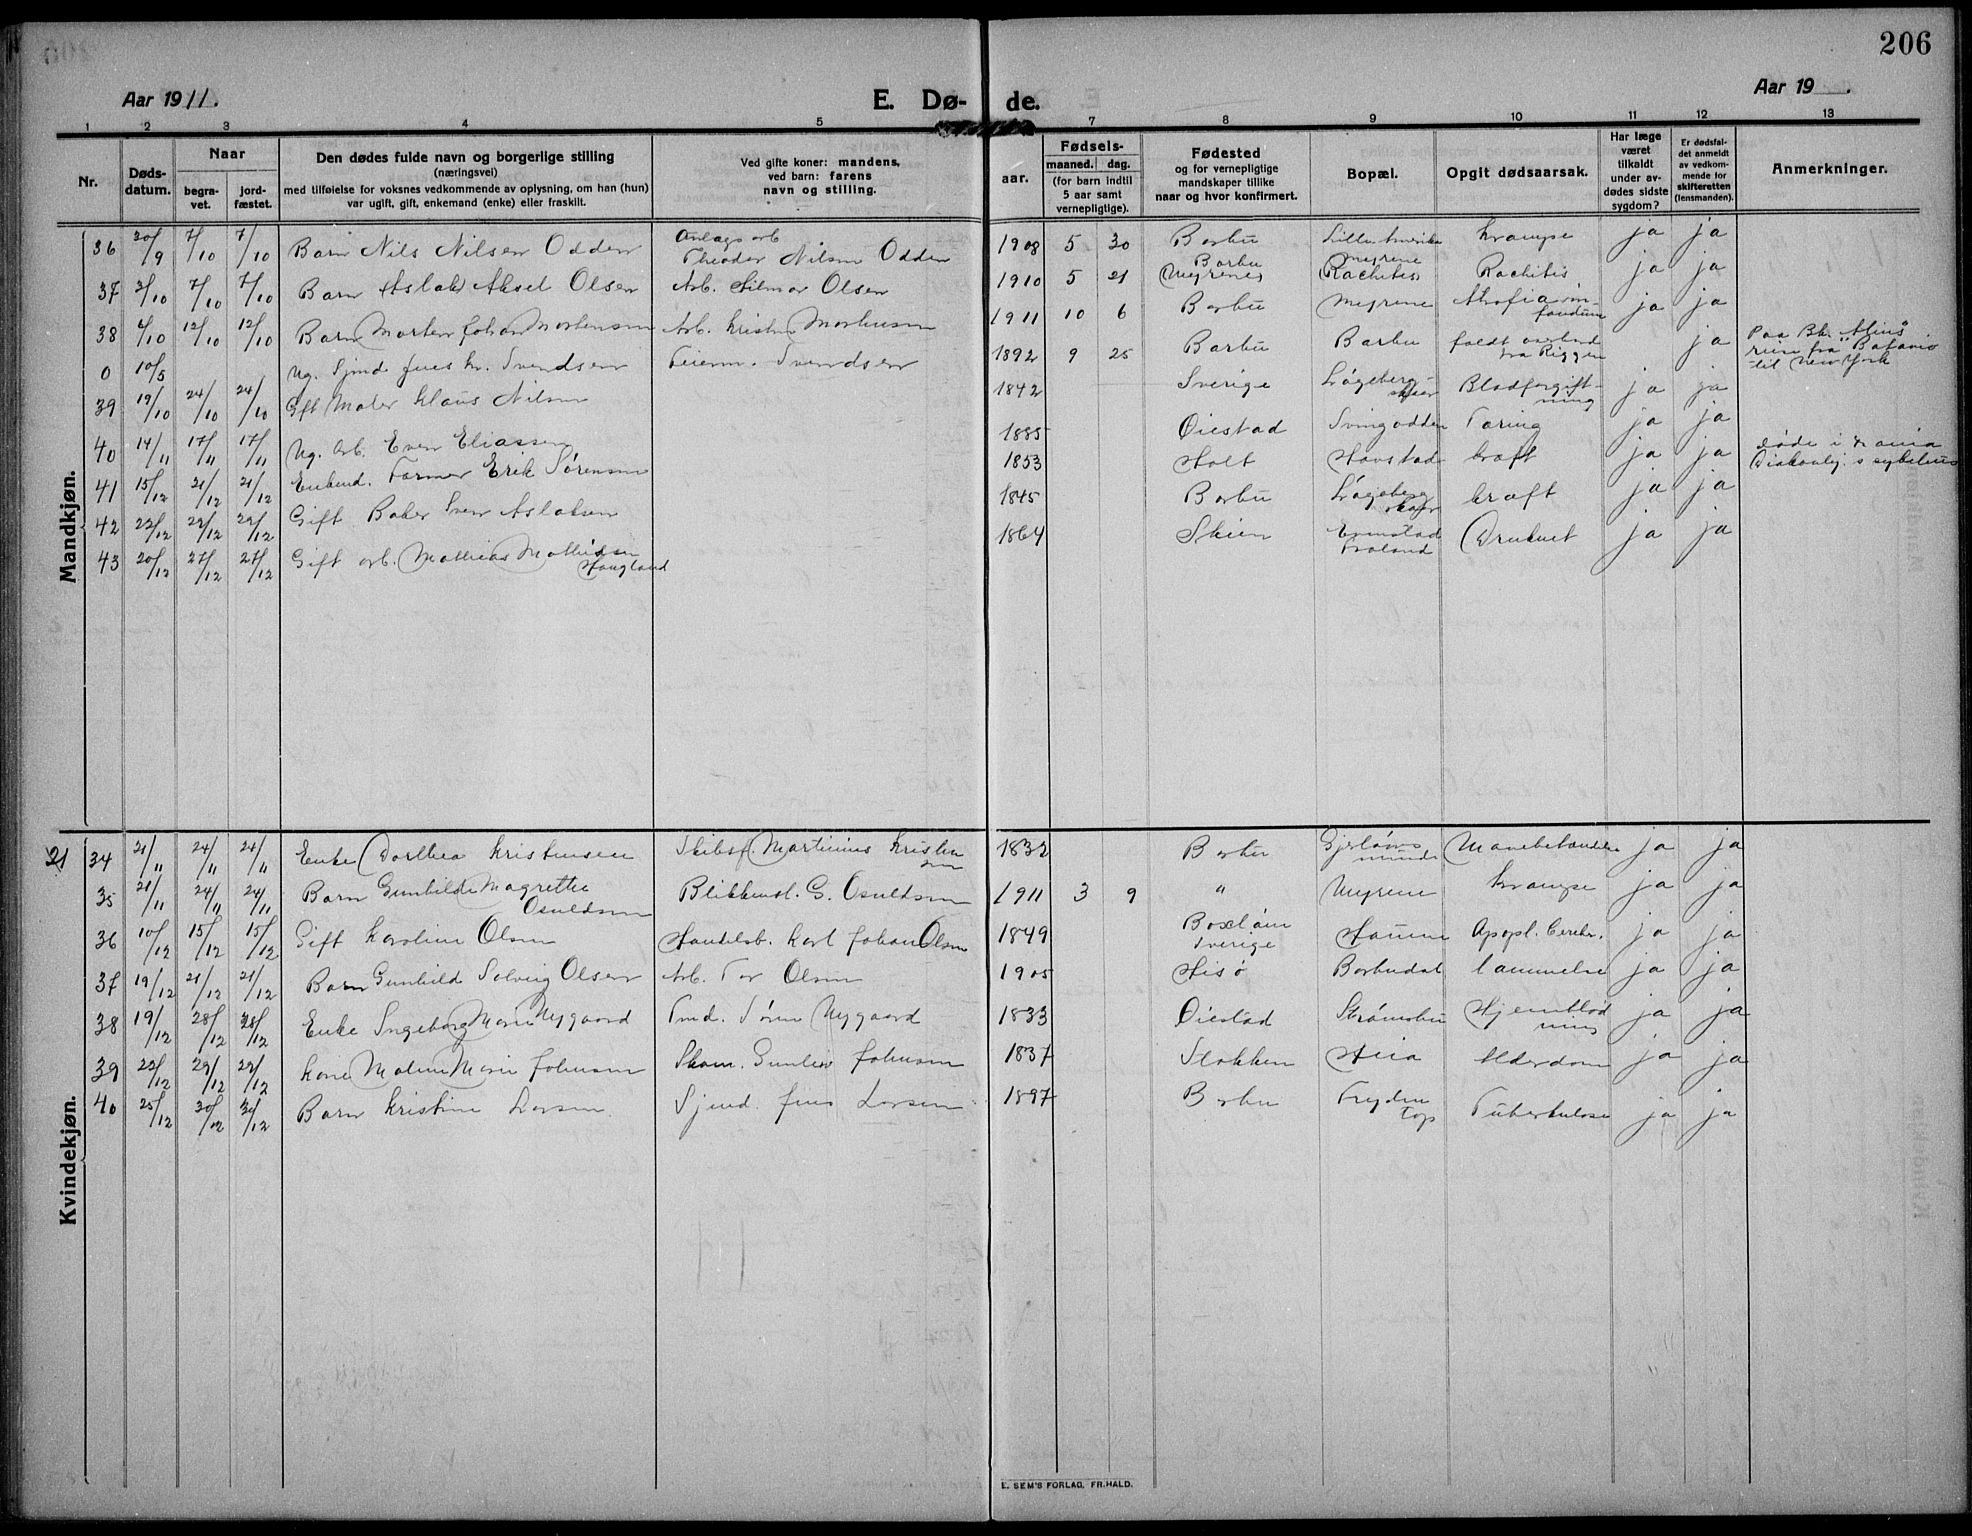 206
Aar 1911.
E. Dø-
de.
Aar 19
1 2 3 4 5 7 8 9 10 11 12 13
Nr.
Døds-
datum.
Naar
begra-
vet.
jord-
fæstet.
Den dødes fulde navn og borgerlige stilling
(næringsvei)
med tilføielse for voksnes vedkommende av oplysning, om han (hun)
var ugift, gift, enkemand (enke) eller fraskilt.
Ved gifte koner: mandens,
ved barn: farens
navn og stilling.
Fødsels-
aar.
maaned. dag.
(for barn indtil
5 aar samt
vernepligtige).
Fødested
og for vernepligtige
mandskaper tillike
naar og hvor konfirmert.
Bopæl.
Opgit dødsaarsak.
Har læge
været
tilkaldt
under av-
dødes sidste
sygdom?
Er dødsfal-
det anmeldt
av vedkom-
mende for
skifteretten
(lensmanden).
Anmerkninger.
Mandkjøn.
36 30/9 7/10 7/10 Barn Nils Nilsen Odden Anlagsarb. Theodor Nilsen Odden 1908 5 30 Barbu Lille Amerika Krampe ja ja
37 2/10 7/10 7/10 Barn Aslak Aksel Olsen Arb. Hilmar Olsen 1910 5 21 Barbu (Myrene) Myrene (Rachitis) Rachitis ja ja
38 4/10 12/10 12/10 Barn Morten Johan Mortensen Arb. Kristen Mortensen 1911 10 6 Barbu Myrene ja ja
0 10/5 Ug. Sjmd Jens Kr. Svendsen Feierm. Svendsen 1892 9 25 Barbu Barbu faldt overbord fra Riggen ja Paa Bk. til New York
39 19/10 24/10 24/10 Gift Maler Klaus Nilsen 1842 Sverige Løgeberg- Blodforgift- ning ja ja
40 14/11 17/11 17/11 Ug. Arb. Even Eliassen 1885 Øiestad Svingodden Tæring ja ja
41 15/12 21/12 21/12 Enkemd. Farmer Erik Sørensen 1853 Holt Havstad kræft ja ja døde i Diakonhj.s sykehus
42 22/12 29/12 29/12 Gift Baker Sven Aslaksen 1845 Barbu Løgeberg kræft ja ja
43 20/12 27/12 27/12 Gift arb. Mathias Mathisen Haugland 1864 Skien Froland Druknet ja ja
Kvindekjøn.
21
34 21/11 24/11 24/11 Enke Dorthea Kristensen Skibsf. Martinius Kristensen 1832 Barbu ja ja
35 21/11 24/11 24/11 Barn Gunhilde Magrethe Osuldsen Blikkensl. G. Osuldsen 1911 3 9 " Myrene Krampe ja ja
36 10/12 15/12 15/12 Gift Karoline Olsen Handelsb. Karl Johan Olsen 1849 Sverige Apopl. Cerebr. ja ja
37 19/12 21/12 21/12 Barn Gunhild Solveig Olsen Arb. Tor Olsen 1905 Hisø Barbudal Lammelse ja ja
38 19/12 28/12 28/12 Enke Ingeborg Marie Nygaard Tmd. Søren Nygaard 1833 Øiestad Strømsbu Hjerneblød ning ja ja
39 22/12 29/12 29/12 Kone Maline Marie Johnsen Skom. Johnsen 1837 Stokken Heia Alderdom ja ja
40 25/12 30/12 31/12 Barn Kristine Larsen Sjmd. Jens Larsen 1897 Barbu Frydentop Tuberkulose ja ja
E. SEM'S FORLAG, FR.HALD.